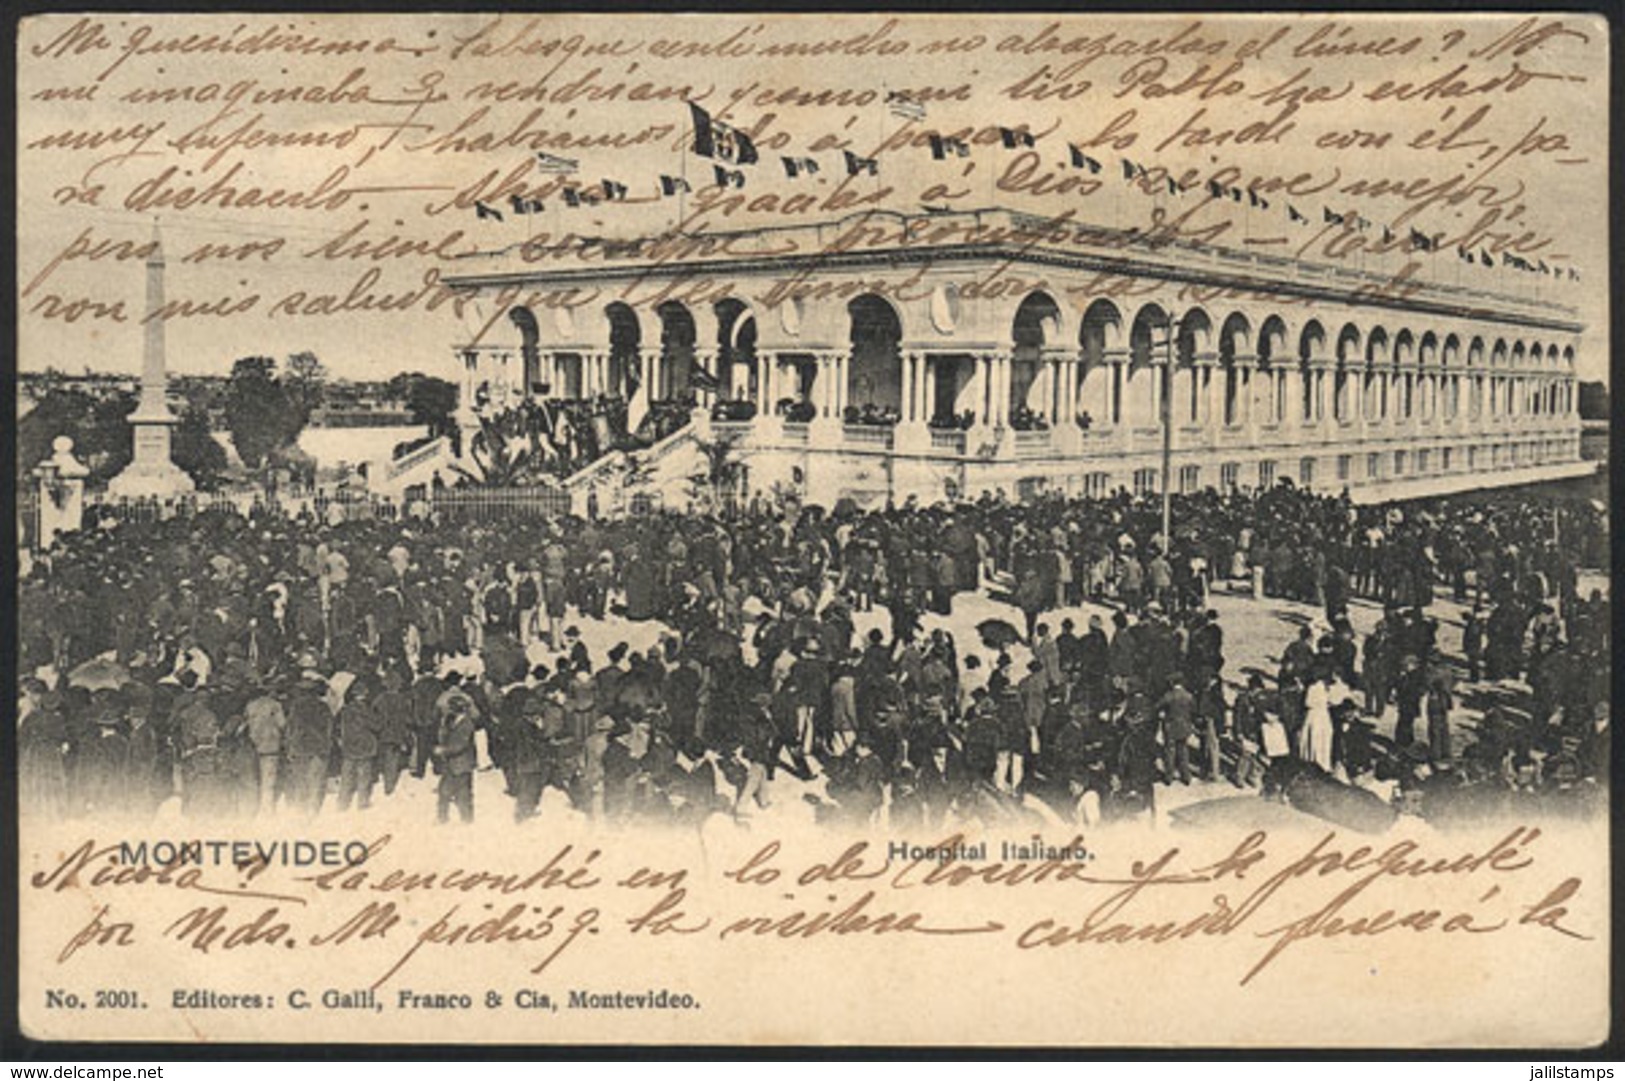 Mi queridísima: Sabes que sentí mucho no abrazarlas el lúnes? No
me imaginaba q. vendrían y como mi tio Pablo ha estado
muy enfermo, habíamos ido á pasar la tarde con él, pa-
ra distraerlo. Ahora gracias á Dios sigue mejor,
pero nos tiene siempre preocupados - Recibie-
ron mis saludos que les envié con la de
MONTEVIDEO
Hospital Italiano.
Nicola? La encontré en lo de y le pregunté
por Uds. Me pidió q. la visitara cuando fuera á la
No. 2001. Editores: C. Galli, Franco & Cia, Montevideo.
jalilstamps